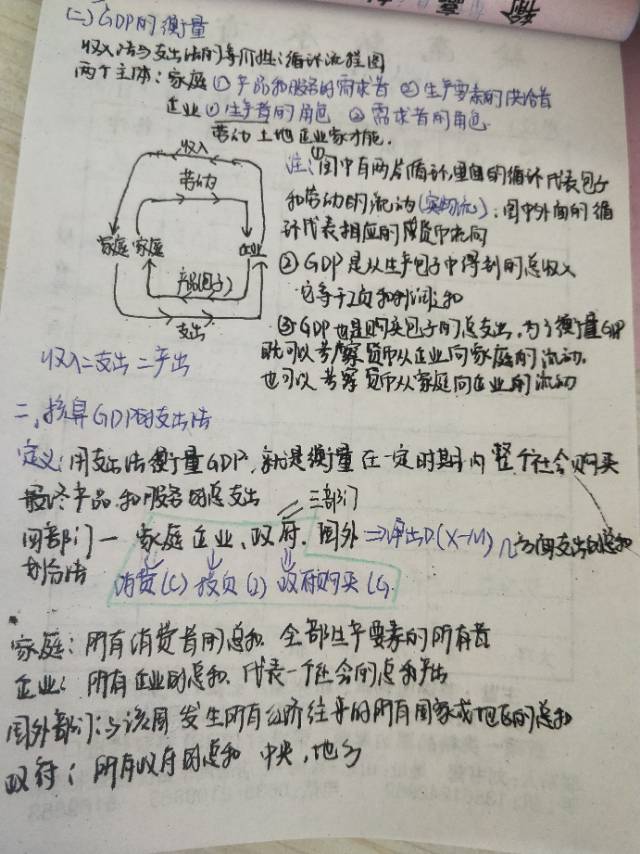 (二) GDP的衡量
收入法与支出法的等价性:循环流程图
两个主体:家庭 ① 产品和服务的需求者 ② 生产要素的供给者
企业 ① 生产者的角色 ② 需求者的角色
劳动 土地 企业家才能.
收入
劳动
家庭 家庭 企业
产品(包子)
支出
注:①图中有两片循环,里面的循环代表包子
和劳动的流动(实物流);图中外面的循
环代表相应的货币流向
② GDP是从生产包子中得到的总收入
它等于工资和利润之和
③ GDP也是购买包子的总支出,为了衡量GDP
既可以考察货币从企业向家庭的流动,
也可以考察货币从家庭向企业的流动
收入=支出=产出
二、核算GDP的支出法
定义:用支出法衡量GDP,就是衡量在一定时期内整个社会购买
最终产品和服务的总支出
三部门
四部门— 家庭 企业、政府、国外⇒净出口(X-M) 几方面支出的总和
划分法
消费(C) 投资(I) 政府购买(G
家庭:所有消费者的总和 全部生产要素的所有者
企业:所有企业的总和,代表一个社会的总和产出
国外部门:与该国发生所有经济往来的所有国家或地区的总和
政府:所有政府的总和 中央,地方